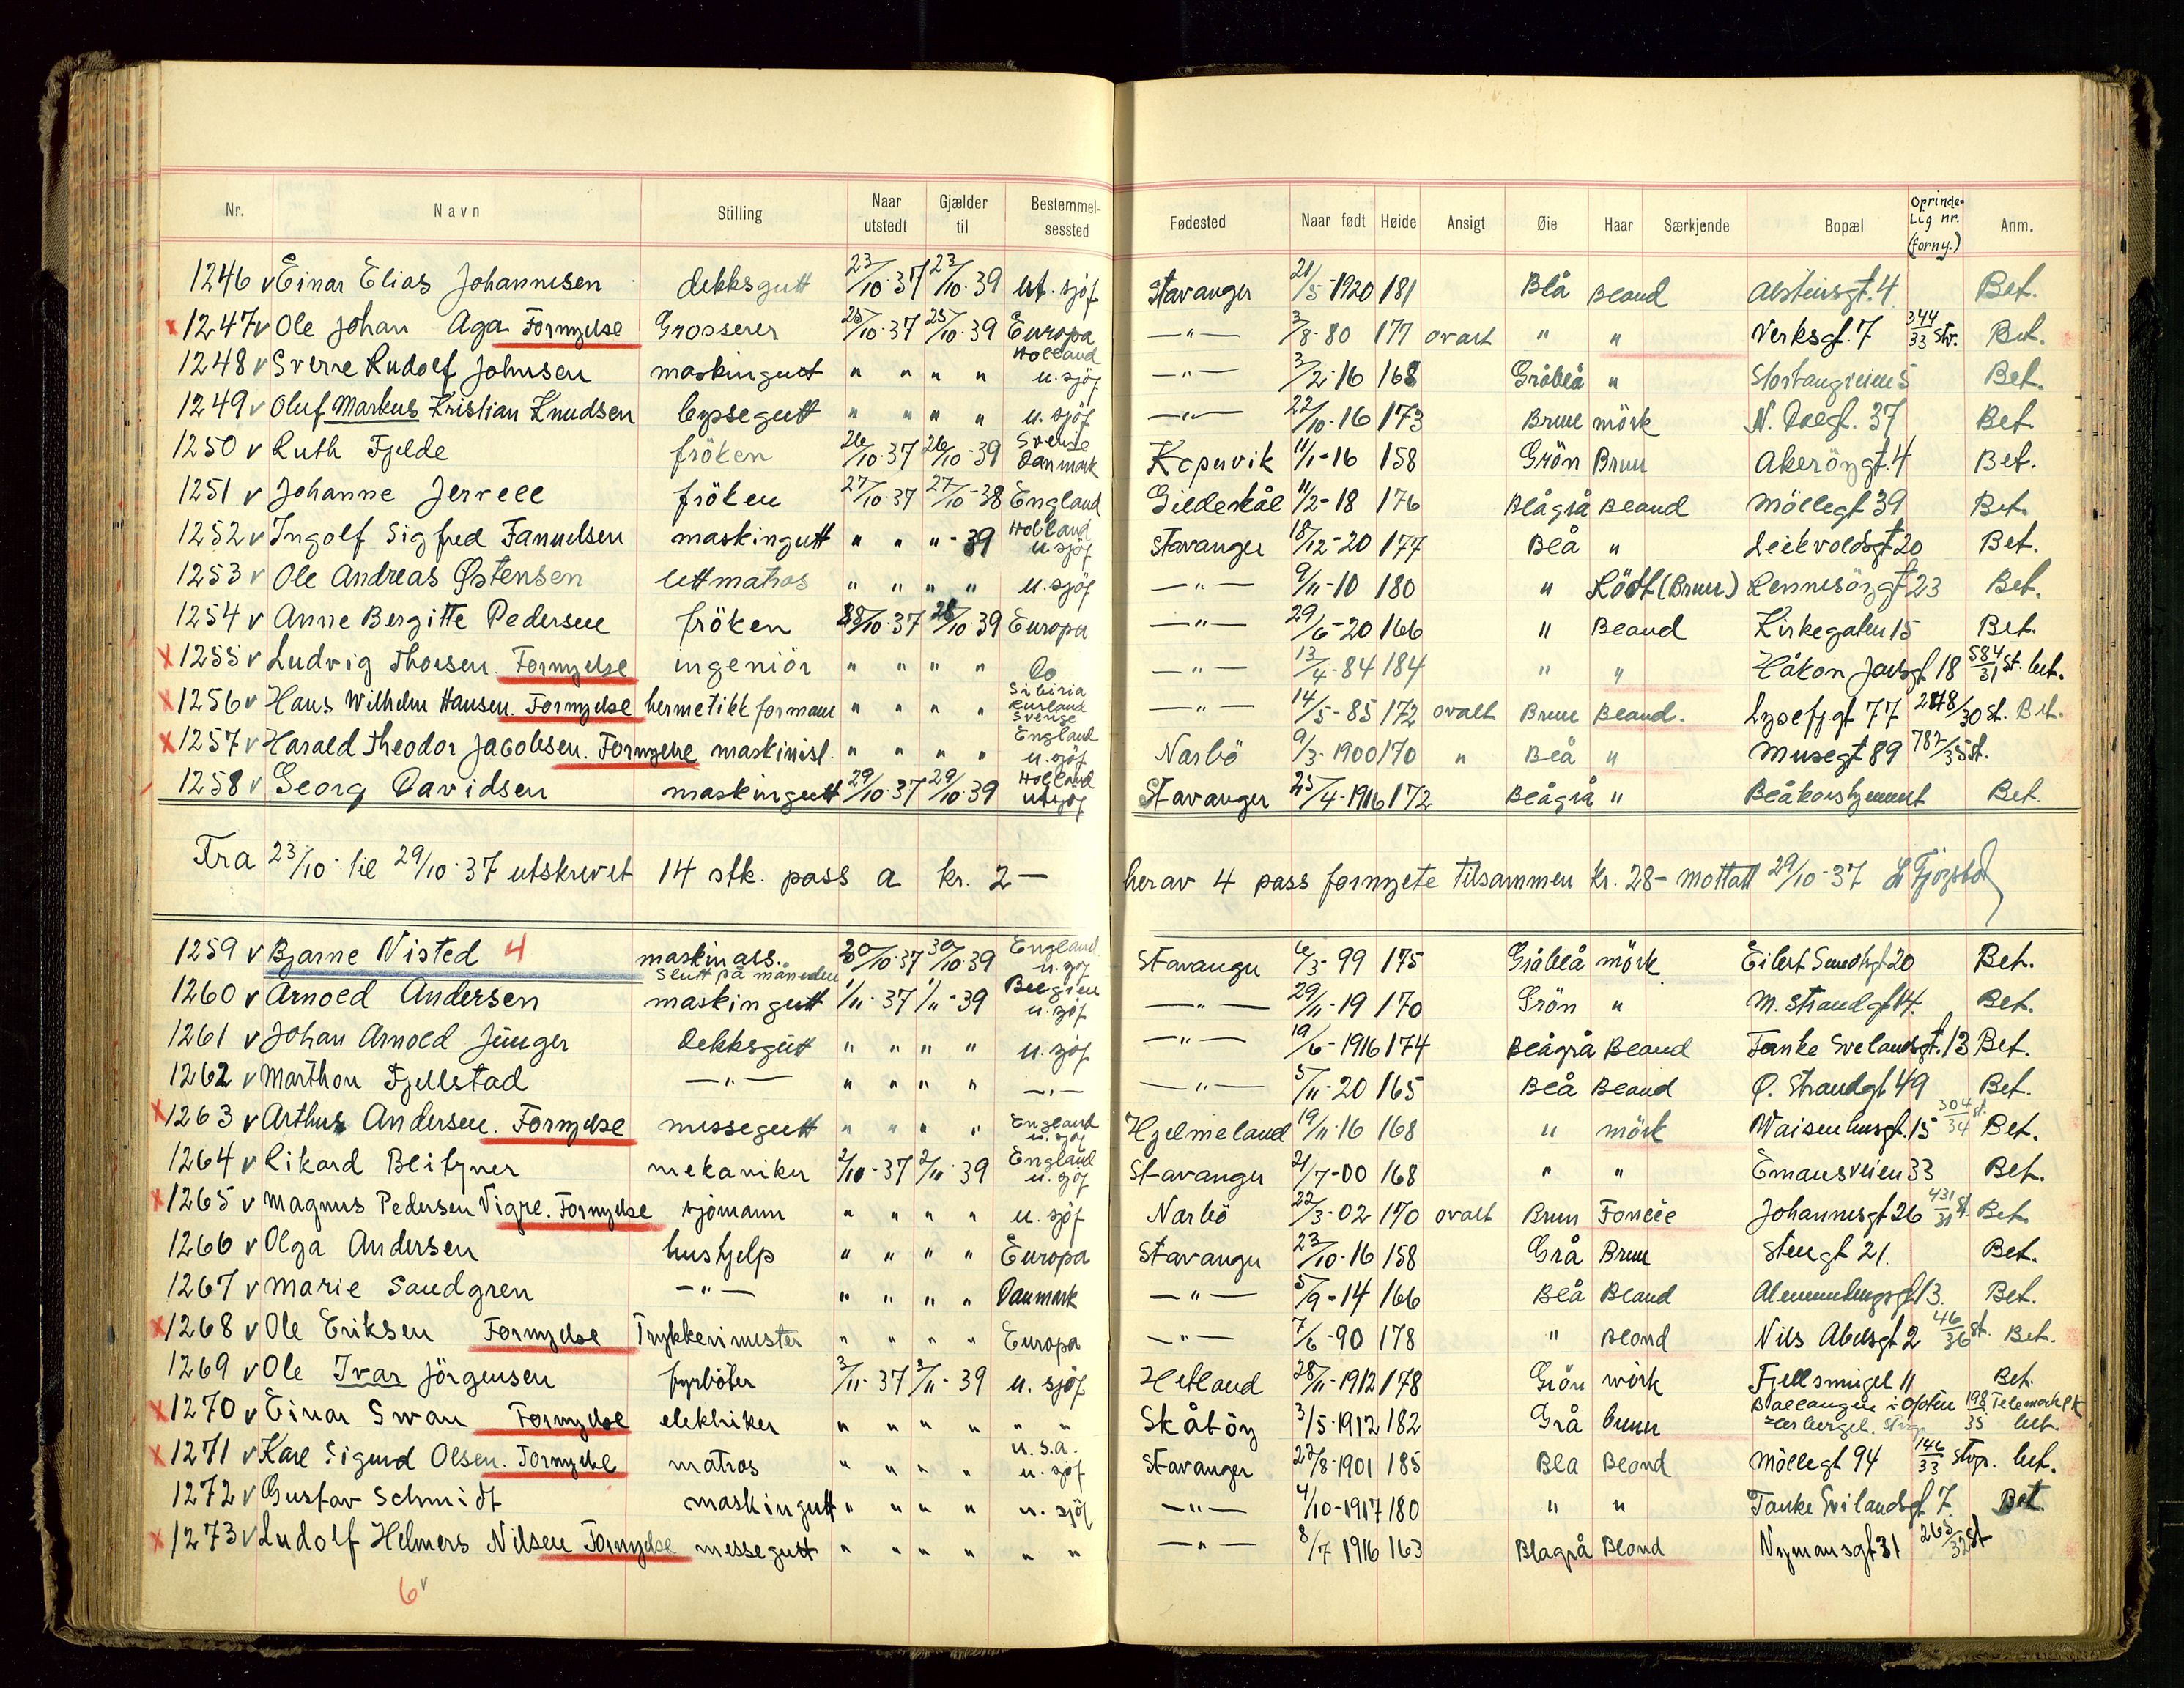 Nr. Navn Stilling Naar utstedt Gjælder til Bestemmelsessted Fødested Naar født Høide Ansigt Øie Haar Særkjende Bopæl Oprindelig nr. (forny.) Anm.
1246 v Einar Elias Johannesen dekksgutt 23/10-37 23/10-39 ut. sjöf Stavanger 21/5-1920 181 Blå Bland Alsteinsgt. 4 Bet.
x 1247 v Ole Johan Aga Fornyelse Grosserer 25/10-37 25/10-39 Europa —"— 3/8-80 177 ovalt " " Verksgt. 7 344/33 Stv. Bet.
1248 v Sverre Rudolf Johnsen maskingutt " " " " Holland u. sjöf —"— 3/2-16 168 Gråblå " Bet.
1249 v Oluf Markus Kristian Knudsen byssegutt " " " " u. sjöf —"— 22/10-16 173 Brun mörk N. Dalgt. 37 Bet.
1250 v Ruth Fjelde fröken 26/10-37 26/10-39 Sverige Danmark Kopervik 11/1-16 158 Grön Brun Akeröygt. 4 Bet.
1251 v Johanne Jervell fröken 27/10-37 27/10-38 England Gildeskål 11/2-18 176 Blågrå Bland Möllegt 39 Bet.
1252 v Ingolf Sigfred Fanuelsen maskingutt " " " -39 Holland u sjöf Stavanger 18/12-20 177 Blå " Leikvoldsgt 20 Bet.
1253 v Ole Andreas Østensen lettmatros " " " " u. sjöf —"— 9/11-10 180 " Rödt (Brun) Rennesöygt 23 Bet.
1254 v Anne Bergitte Pedersen fröken 28/10-37 28/10-39 Europa —"— 29/6-20 166 " Bland Kirkegaten 15 Bet.
x 1255 v Ludvig Thorsen. Fornyelse ingeniör " " " " Do —"— 13/4-84 184 " " Håkon Jarlsgt 18 584/31 St. bet.
x 1256 v Hans Wilhelm Hansen. Fornyelse hermetikk formann " " " " Sibiria Rusland Sverige —"— 14/5-85 172 ovalt Brun Bland. Lysefjgt 77 2878/30 St. Bet.
x 1257 v Harald Theodor Jacobsen. Fornyelse maskinist. " " " " England u. sjöf Narbö 9/3-1900 170 " Blå " Musegt 89 782/35 St.
1258 v Georg Davidsen maskingutt 29/10-37 29/10-39 Holland utsjöf Stavanger 25/4-1916 172 Blågrå " Blåkorshjemmet Bet.
Fra 23/10- til 29/10-37 utskrevet 14 stk. pass a kr. 2— herav 4 pass fornyete tilsammen kr. 28- mottatt 29/10-37
1259 v Bjarne Nisted 4 maskinass. slutt på måneden 30/10-37 30/10-39 England u. sjöf Stavanger 6/3-99 175 Gråblå mörk Eilert Sundtsgt 20 Bet.
1260 v Arnold Andersen maskingutt 1/11-37 1/11-39 Belgien u. sjöf —"— 29/11-19 170 Grön " M. Strandgt 14. Bet.
1261 v Johan Arnold Jünger Dekksgutt " " " " u. sjöf —"— 19/6-1916 174 Blågrå Bland Tanke Svelandsgt. 13 Bet.
1262 v Marthon Fjellstad —"— " " " " —"— —"— 5/11-20 165 Blå Bland Ø. Strandgt 49 Bet.
x 1263 v Arthur Andersen. Fornyelse messegutt " " " " England u. sjöf Hjelmeland 19/11-16 168 " mörk Waisenhusgt. 15 304/34 St. Bet.
1264 v Rikard Blitzner mekaniker 2/10-37 2/11-39 England u. sjöf Stavanger 21/7-00 168 " " Emausveien 33 Bet.
x 1265 v Magnus Pedersen Vigre. Fornyelse sjömann " " " " u. sjöf Narbö 22/3-02 170 ovalt Brun Johannesgt 26 431/31 St. Bet.
1266 v Olga Andersen hushjelp " " " " Europa Stavanger 23/10-16 158 Grå Brun Stengt 21. Bet.
1267 v Marie Sandgren —"— " " " " Danmark —"— 5/9-14 166 Blå Bland Alemenningsgt 13. Bet.
x 1268 v Ole Eriksen Fornyelse Trykkerimester " " " " Europa —"— 7/6-90 178 " Blond Nils Abelsgt 2 46/36 St. Bet.
1269 v Ole Ivar Jörgensen fyrböter 3/11-37 3/11-39 u. sjöf Hetland 28/11-1912 178 Grön mörk Fjellsmuget 11 Bet.
x 1270 v Einar Swan Fornyelse elektriker " " " " " " Skåtöy 3/5-1912 182 Grå brun Ballangen i Ofoten 198/35 Telemark PK bet
x 1271 v Karl Sigurd Olsen. Fornyelse matros " " " " U.S.A. u. sjöf Stavanger 27/8-1901 185 Blå Blond Möllegt 94 146/33 Stvgr. bet.
1272 v Gustav Schmidt maskingutt " " " " u. sjöf —"— 4/10-1917 180 " " Tanke Svilandsgt 7. Bet.
x 1273 v Ludolf Helmers Nilsen Fornyelse messegutt " " " " " " —"— 8/7 1916 163 Blågrå Blond Nymansgt 31 265/32 St
6 v